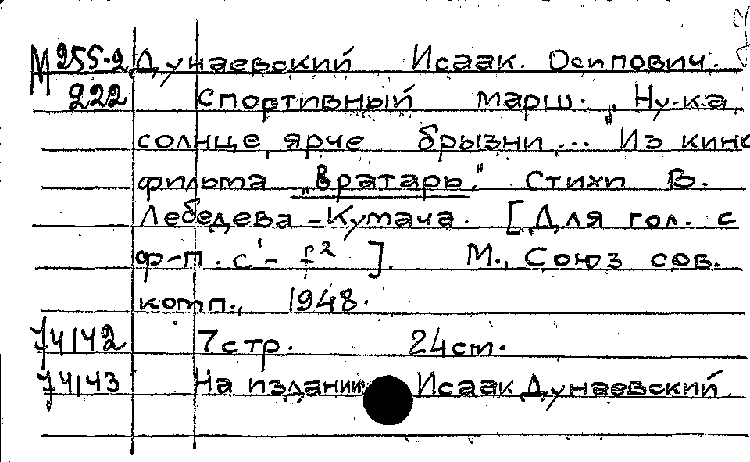 М 255-2 Дунаевский Исаак Осипович.
222 Спортивный марш. „Ну-ка
солнце, ярче брызни... Из кино
фильма „Вратарь". Стихи В.
Лебедева-Кумача. [Для гол. с
ф-п. c¹ - f²]. М., Союз сов.
комп., 1948.
74142 7 стр. 24 см.
74143 На издании: Исаак Дунаевский